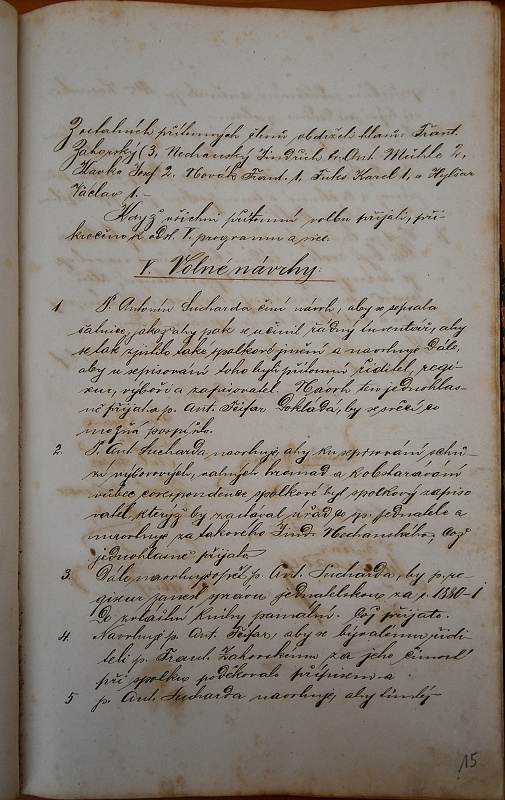 Z ostatních přítomných členů obdrželi hlasů: Frant.
Záhorský (3, Nechanský Jindřich 1, Ant. Mühle 2,
Hlavka Josef 2, Novák Frant. 1, Fuks Karel 1, a
Václav 1.-
Když všichni přítomní volbu přijali, při-
kročeno k odst. V. programu a sice.
V. Volné návrhy:
1 P. Antonín Sucharda činí návrh, aby se sepsala
šatnice, aby pak se učinil řádný inventář, aby
se tak zjistilo také spolkové jmění a navrhuje Dále,
aby u sepisování toho byli přítomni ředitel, regi-
sseur, výboři a zapisovatel. Návrh ten jednohlas-
ně přijat a p. Ant. Šeifar Dokládá, by se vším co
možná pospíšilo.
2. P. Ant. Sucharda navrhuje, aby ku sepisování schů-
zí výborových, valných hromad a k obstarávání
vůbec corespondence spolkové byl spolkový zapiso
vatel, kterýž by zastával úřad co p. jednatele a
navrhuje za takového Jind. Nechanského, což
jednohlasně přijato
3. Dále navrhuje opět p. Ant. Sucharda, by p. re-
gisseur zanesl zprávu jednatelskou za r. 1880-1
Do zvláštní knihy památní. Což přijato.
4. Navrhuje p. Ant. Šeifar, aby se bývalému ředi-
teli p. Frant. Záhorskému za jeho činnost
při spolku poděkovalo přípisem a
5 p. Ant. Sucharda navrhuje, aby
15